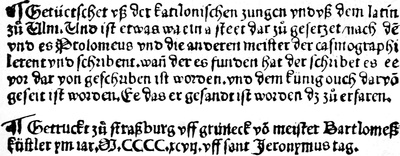 ¶ Getütschet vß der katilonischen zungen vnd vß dem latin
zů Ulm. Und ist etwas wa ein a steet dar zů gesetzet/nach dē
vnd es Ptolomeus vnd die anderen meister der cosmographi
lerent vnd schribent. wañ der es funden hat der schribet es ee
vor dar von geschriben ist worden. vnd dem künig ouch dar võ
geseit ist worden. Ee das er gesandt ist worden dz zů erfaren.
¶ Getruckt zů straßburg vff grüneck võ meister Bartlomeß
küstler ym iar. M.CCCC.xcvij. vff sant Jeronymus tag.